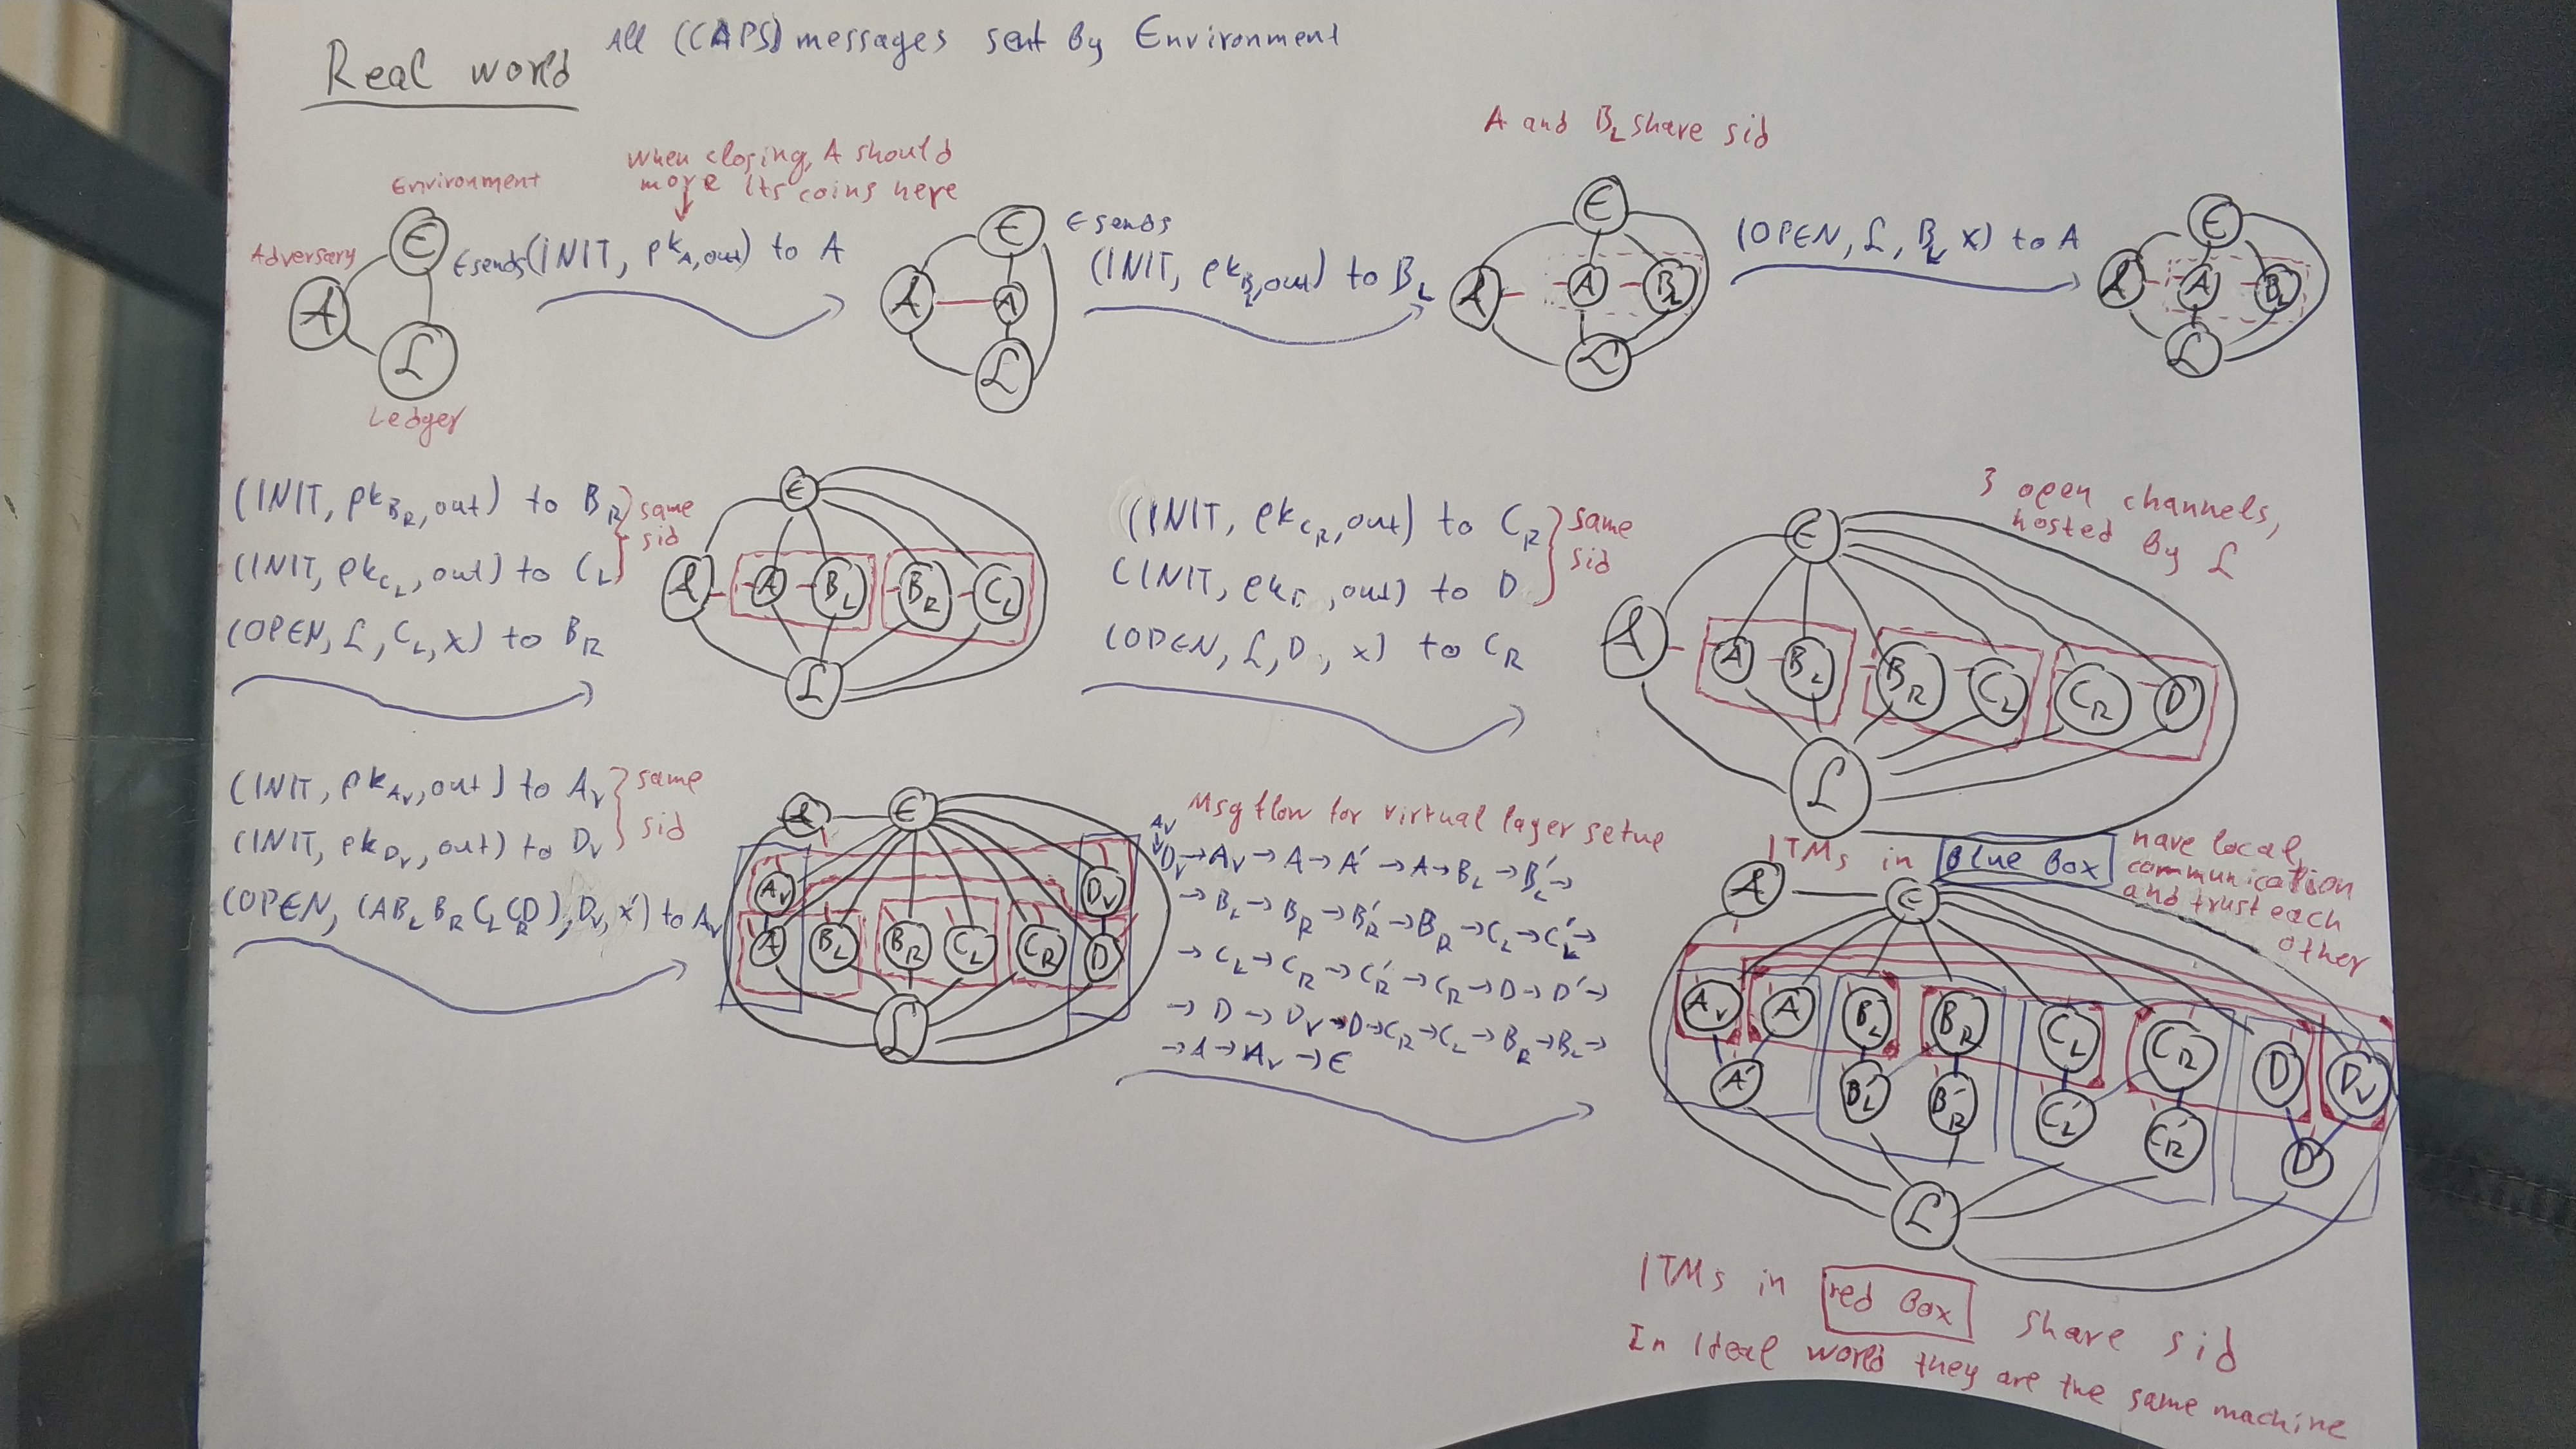 Real world
All (CAPS) messages sent by Environment
Environment
Adversary
E
A
L
Ledger
When closing, A should
move its coins here
E sends (INIT, pk_A,out) to A
E
A
A
L
E sends
(INIT, pk_B_L,out) to B_L
A and B_L share sid
E
A
A
B_L
L
(OPEN, L, B_L, x) to A
E
A
A
B_L
L
(INIT, pk_B_R,out) to B_R
(INIT, pk_C_L,out) to C_L
same
sid
(OPEN, L, C_L, x) to B_R
E
A
A
B_L
B_R
C_L
L
(INIT, pk_C_R,out) to C_R
(INIT, pk_D,out) to D
same
sid
(OPEN, L, D, x) to C_R
3 open channels,
hosted by L
E
A
A
B_L
B_R
C_L
C_R
D
L
(INIT, pk_A_V,out) to A_V
(INIT, pk_D_V,out) to D_V
same
sid
(OPEN, (AB_L B_R C_L C_R D), D_V, x') to A_V
A
E
A_V
D_V
A
B_L
B_R
C_L
C_R
D
L
Msg flow for virtual layer setup
A_V
↓
D_V → A_V → A → A' → A → B_L → B'_L →
→ B_L → B_R → B'_R → B_R → C_L → C'_L →
→ C_L → C_R → C'_R → C_R → D → D' →
→ D → D_V → D → C_R → C_L → B_R → B_L →
→ A → A_V → E
ITMs in Blue Box
have local
communication
and trust each
other
A
E
A_V
A
B_L
B_R
C_L
C_R
D
D_V
A'
B'_L
B'_R
C'_L
C'_R
D'
L
ITMs in red box share sid
In Ideal world they are the same machine